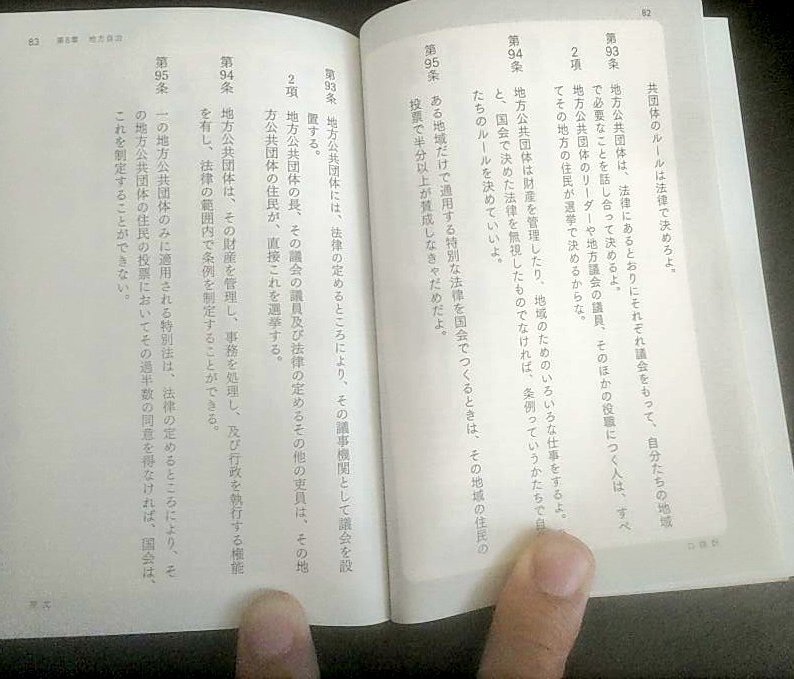 82
共団体のルールは法律で決めろよ。
第93条 地方公共団体は、法律にあるとおりにそれぞれ議会をもって、自分たちの地域
で必要なことを話し合って決めるよ。
2項 地方公共団体のリーダーや地方議会の議員、そのほかの役職につく人は、すべ
てその地方の住民が選挙で決めるからな。
第94条 地方公共団体は財産を管理したり、地域のためのいろいろな仕事をするよ。
と、国会で決めた法律を無視したものでなければ、条例っていうかたちで自
たちのルールを決めていいよ。
第95条 ある地域だけで適用する特別な法律を国会でつくるときは、その地域の住民の
投票で半分以上が賛成しなきゃだめだよ。
口語訳
83 第8章 地方自治
第93条 地方公共団体には、法律の定めるところにより、その議事機関として議会を設
置する。
2項 地方公共団体の長、その議会の議員及び法律の定めるその他の吏員は、その地
方公共団体の住民が、直接これを選挙する。
第94条 地方公共団体は、その財産を管理し、事務を処理し、及び行政を執行する権能
を有し、法律の範囲内で条例を制定することができる。
第95条 一の地方公共団体のみに適用される特別法は、法律の定めるところにより、そ
の地方公共団体の住民の投票においてその過半数の同意を得なければ、国会は、
これを制定することができない。
原文